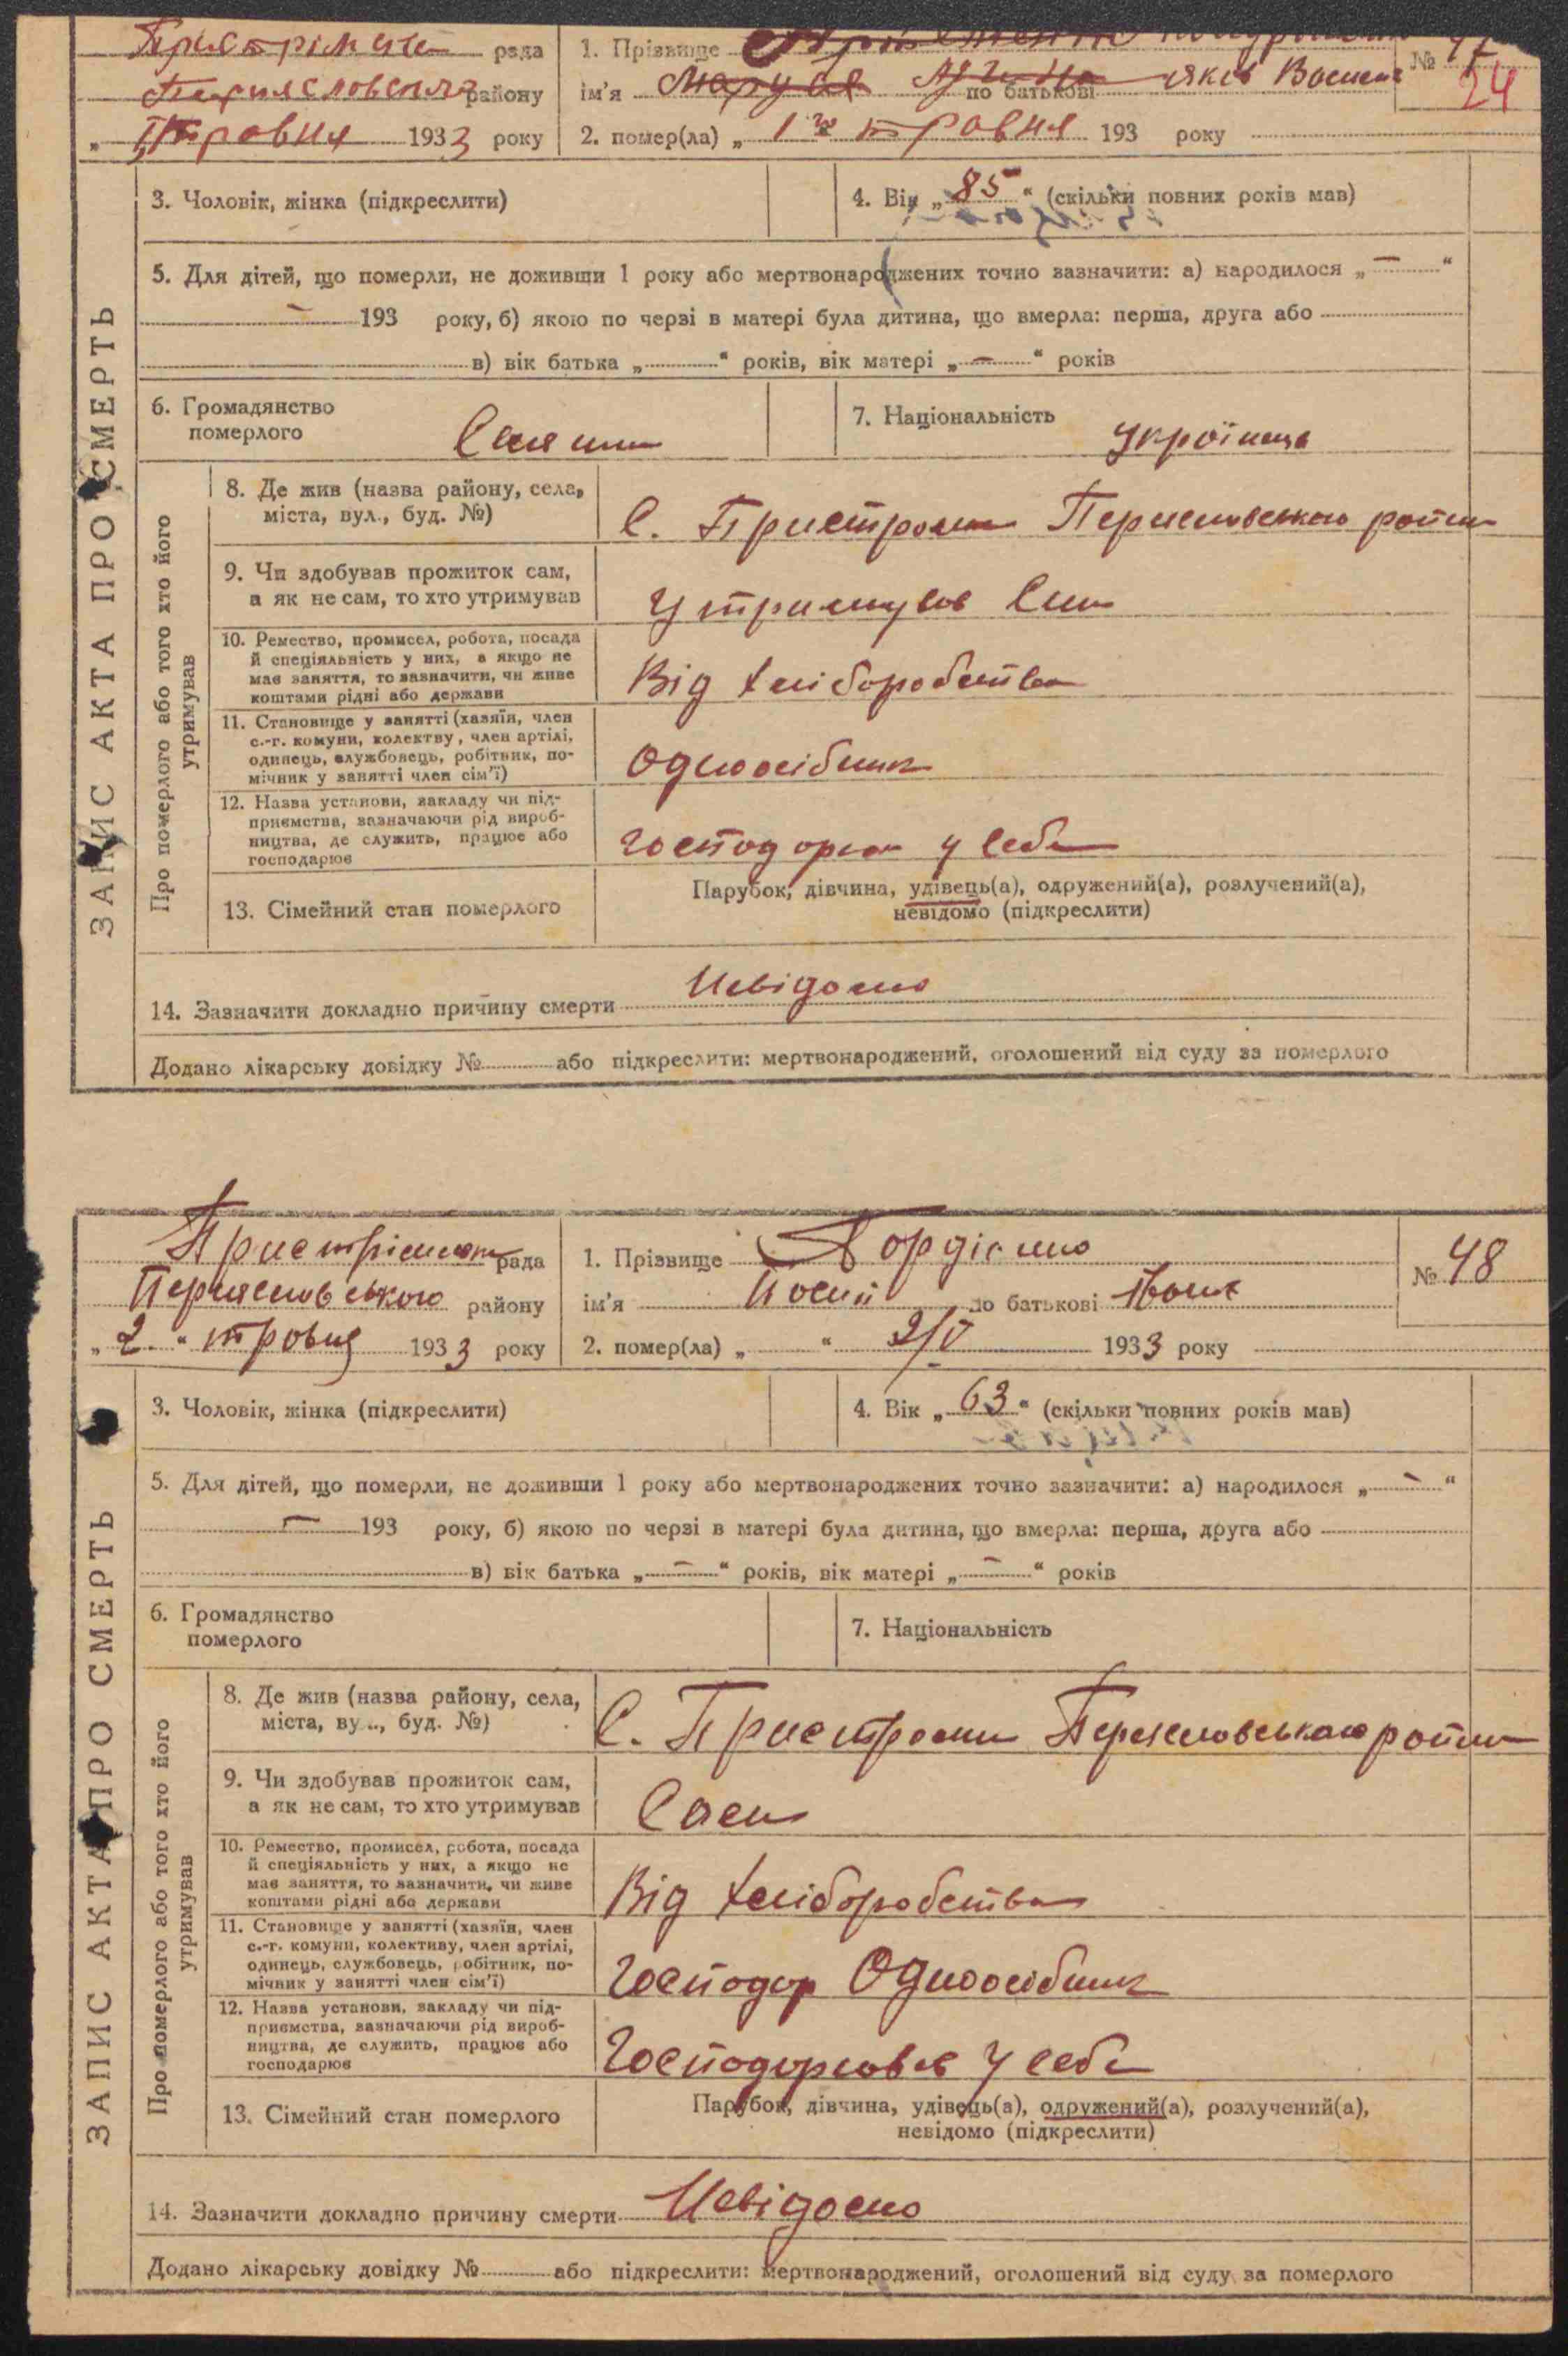 рада
району
„ травня 1933 року
1. Прізвище
ім'я Маруся по батькові Яків
№ 47
24
2. помер(ла) „ 1го травня 193 року
ЗАПИС АКТА ПРО СМЕРТЬ
3. Чоловік, жінка (підкреслити)
4. Вік „ 85 “ (скільки повних років мав)
5. Для дітей, що померли, не доживши 1 року або мертвонароджених точно зазначити: а) народилося „ — “
— 193 року, б) якою по черзі в матері була дитина, що вмерла: перша, друга або
в) вік батька „ “ років, вік матері „ — “ років
6. Громадянство
померлого
7. Національність
Про померлого або того хто його
утримував
8. Де жив (назва району, села,
міста, вул., буд. №)
С. Пристроми Переяславського
9. Чи здобував прожиток сам,
а як не сам, то хто утримував
Утримував Син
10. Ремество, промисел, робота, посада
й спеціяльність у них, а якщо не
має заняття, то зазначити, чи живе
коштами рідні або держави
Від хліборобства
11. Становище у занятті (хазяїн, член
с.-г. комуни, колектву, член артілі,
одинець, службовець, робітник, по-
мічник у занятті член сім'ї)
Одноосібник
12. Назва установи, закладу чи під-
приємства, зазначаючи рід вироб-
ництва, де служить, працює або
господарює
у себе
13. Сімейний стан померлого
Парубок, дівчина, удівець(а), одружений(а), розлучений(а),
невідомо (підкреслити)
14. Зазначити докладно причину смерти Невідомо
Додано лікарську довідку № або підкреслити: мертвонароджений, оголошений від суду за померлого
рада
Переяславського району
„ 2 “ травня 1933 року
1. Прізвище Гордієнко
ім'я по батькові
№ 48
2. помер(ла) „ “ 2/V 1933 року
ЗАПИС АКТА ПРО СМЕРТЬ
3. Чоловік, жінка (підкреслити)
4. Вік „ 63 “ (скільки повних років мав)
5. Для дітей, що померли, не доживши 1 року або мертвонароджених точно зазначити: а) народилося „ — “
— 193 року, б) якою по черзі в матері була дитина, що вмерла: перша, друга або
в) вік батька „ — “ років, вік матері „ — “ років
6. Громадянство
померлого
7. Національність
Про померлого або того хто його
утримував
8. Де жив (назва району, села,
міста, вул., буд. №)
С. Пристроми Переяславського
9. Чи здобував прожиток сам,
а як не сам, то хто утримував
Сам
10. Ремество, промисел, робота, посада
й спеціяльність у них, а якщо не
має заняття, то зазначити, чи живе
коштами рідні або держави
Від хліборобства
11. Становище у занятті (хазяїн, член
с.-г. комуни, колективу, член артілі,
одинець, службовець, робітник, по-
мічник у занятті член сім'ї)
Господар Одноосібник
12. Назва установи, закладу чи під-
приємства, зазначаючи рід вироб-
ництва, де служить, працює або
господарює
Господарював у себе
13. Сімейний стан померлого
Парубок, дівчина, удівець(а), одружений(а), розлучений(а),
невідомо (підкреслити)
14. Зазначити докладно причину смерти Невідомо
Додано лікарську довідку № або підкреслити: мертвонароджений, оголошений від суду за померлого